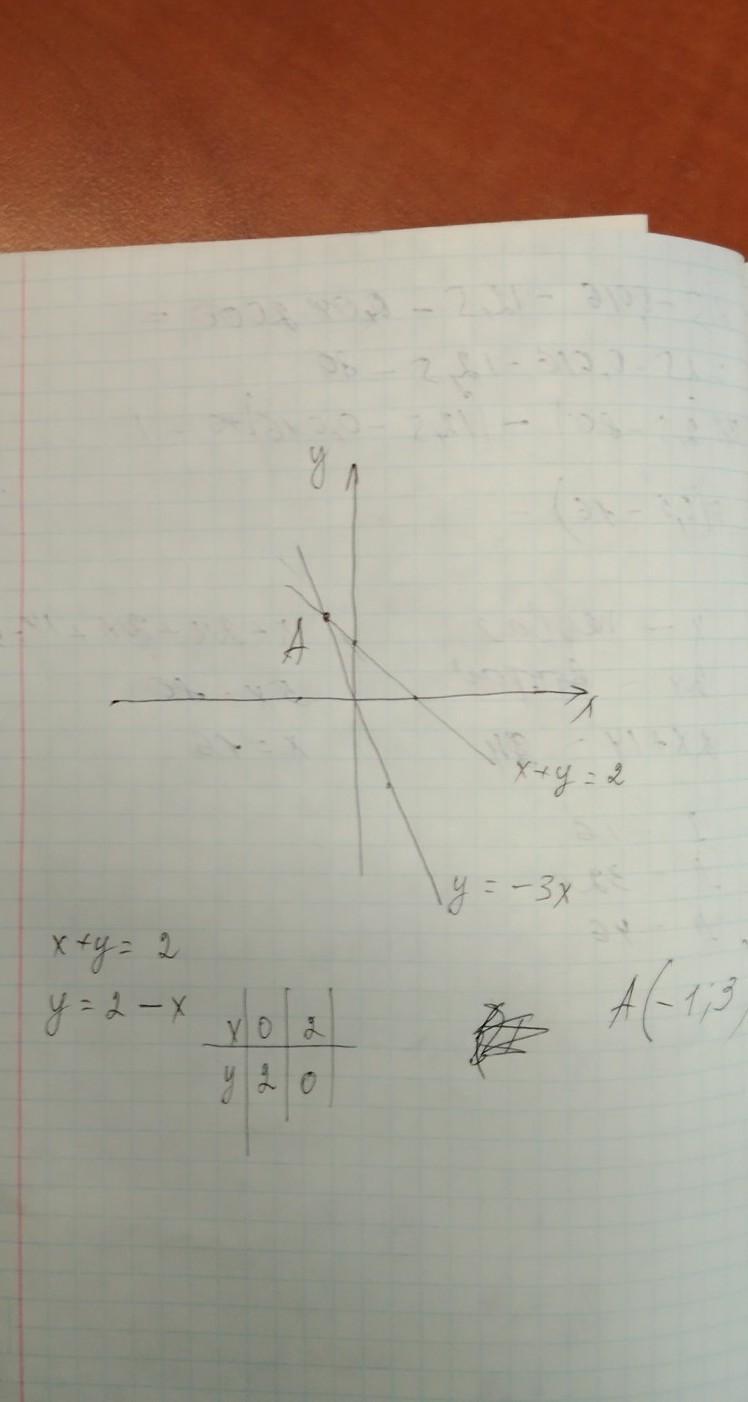 y
A
x
x+y=2
y=-3x
x+y=2
y=2-x
x 0 2
y 2 0
A(-1;3)